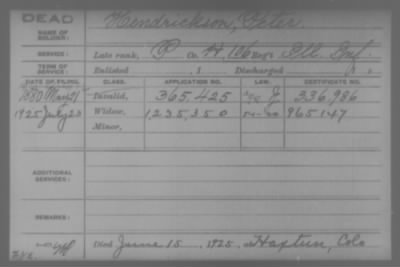 DEAD
NAME OF SOLDIER: Hendrickson, Peter
SERVICE: Late rank, P Co. H, 126 Reg't Ill Inf.
TERM OF SERVICE: Enlisted , 1 Discharged , 1
DATE OF FILING. CLASS. APPLICATION NO. LAW. CERTIFICATE NO.
1880 May 21 Invalid, 365,425 J 336,986
1925 July 23 Widow, 1,235,350 965147
Minor,
ADDITIONAL SERVICES:
REMARKS:
Died June 15, 1925, at Haxtun, Colo